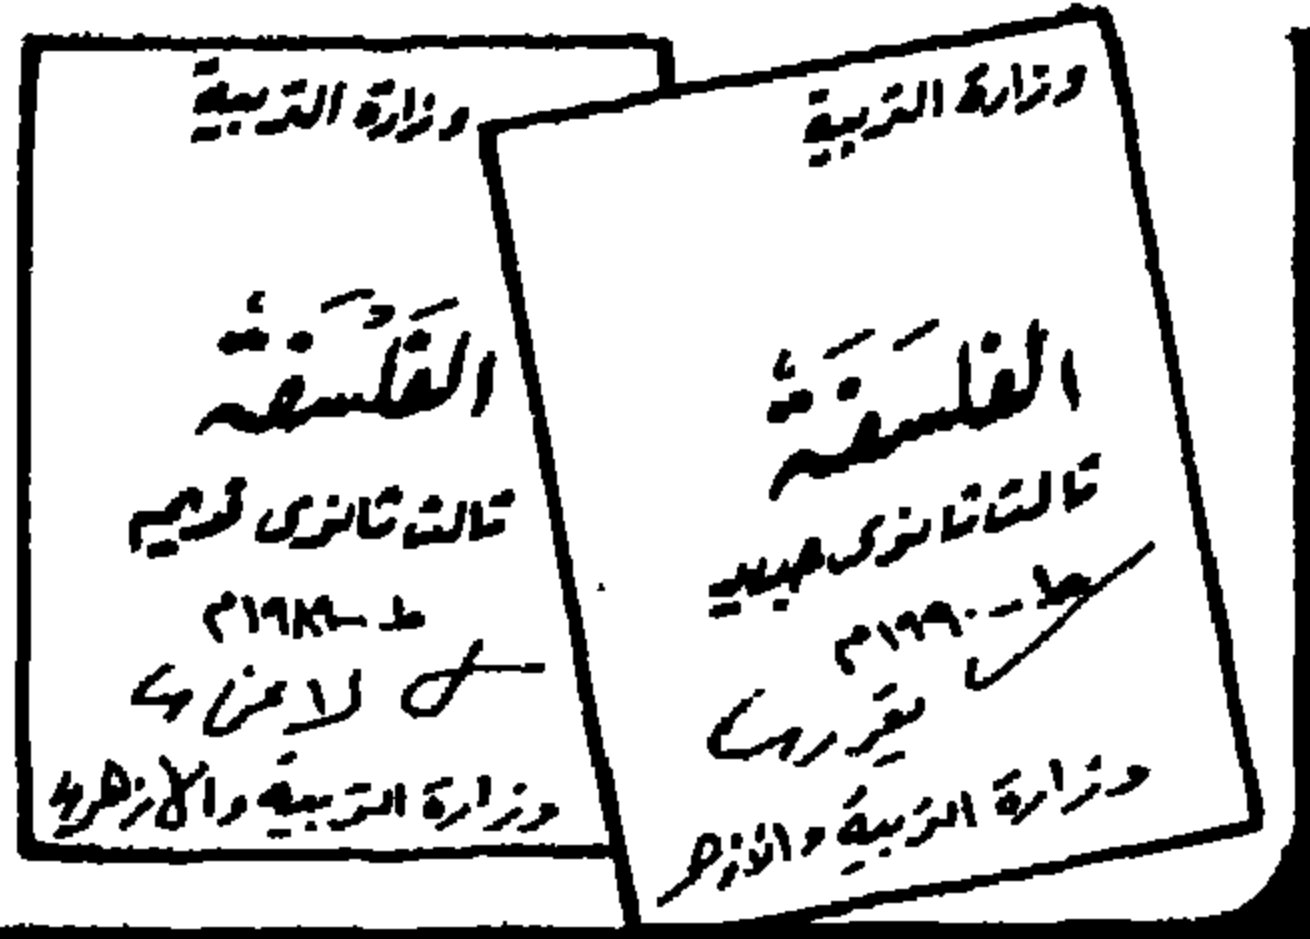 وزارة التربية
الفلسفة
ثالث ثانوى جديد
ط - ١٩٩٠م
يقررها
وزارة التربية والأزهر
وزارة التربية
الفلسفة
ثالث ثانوى قديم
ط - ١٩٨٩م
وزارة التربية والأزهر